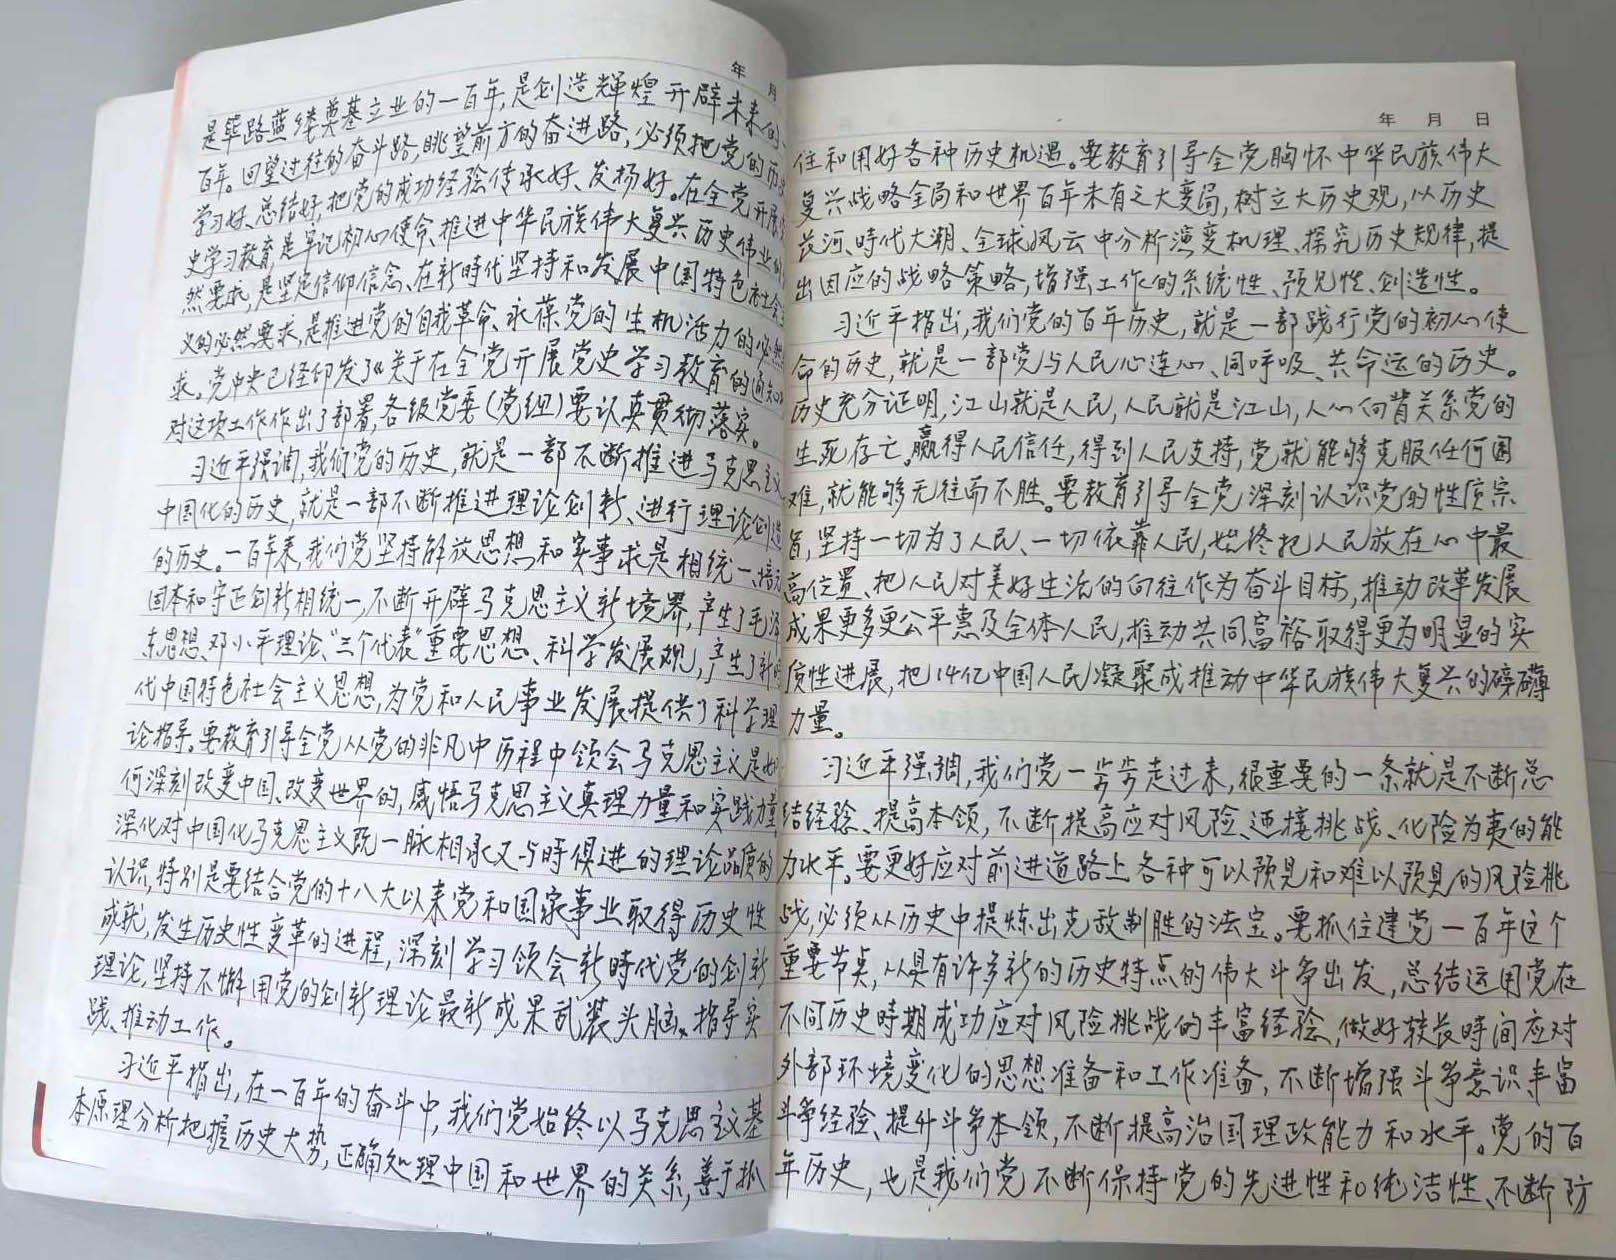 年 月
是筚路蓝缕奠基立业的一百年,是创造辉煌开辟未来的一
百年。回望过往的奋斗路,眺望前方的奋进路,必须把党的历史
学习好、总结好,把党的成功经验传承好、发扬好。在全党开展党
史学习教育是牢记初心使命、推进中华民族伟大复兴历史伟业的必
然要求,是坚定信仰信念、在新時代坚持和发展中国特色社会主
义的必然要求,是推进党的自我革命、永葆党的生机活力的必然要
求。党中央已经印发了《关于在全党开展党史学习教育的通知》
对这项工作作出了部署,各级党委(党组)要认真贯彻落实。
习近平强调,我们党的历史,就是一部不断推进马克思主义
中国化的历史,就是一部不断推进理论创新、进行理论创造
的历史。一百年来,我们党坚持解放思想和实事求是相统一、培元
固本和守正创新相统一,不断开辟马克思主义新境界,产生了毛泽
东思想、邓小平理论、“三个代表”重要思想、科学发展观,产生了新時
代中国特色社会主义思想,为党和人民事业发展提供了科学理
论指导。要教育引导全党从党的非凡中历程中领会马克思主义是如
何深刻改变中国、改变世界的,感悟马克思主义真理力量和实践力量
深化对中国化马克思主义既一脉相承又与時俱进的理论品质的
认识,特别是要结合党的十八大以来党和国家事业取得历史性
成就,发生历史性变革的进程,深刻学习领会新時代党的创新
理论,坚持不懈用党的创新理论最新成果武装头脑、指导实
践、推动工作。
习近平指出,在一百年的奋斗中,我们党始终以马克思主义基
本原理分析把握历史大势,正确处理中国和世界的关系,善于抓
年 月 日
住和用好各种历史机遇。要教育引导全党胸怀中华民族伟大
复兴战略全局和世界百年未有之大变局,树立大历史观,以历史
长河、時代大潮、全球风云中分析演变机理、探究历史规律,提
出因应的战略策略,增强工作的系统性、预见性、创造性。
习近平指出,我们党的百年历史,就是一部践行党的初心使
命的历史,就是一部党与人民心连心、同呼吸、共命运的历史。
历史充分证明,江山就是人民,人民就是江山,人心向背关系党的
生死存亡。赢得人民信任,得到人民支持,党就能够克服任何困
难,就能够无往而不胜。要教育引导全党深刻认识党的性质宗
旨,坚持一切为了人民、一切依靠人民,始终把人民放在心中最
高位置、把人民对美好生活的向往作为奋斗目标,推动改革发展
成果更多更公平惠及全体人民,推动共同富裕取得更为明显的实
质性进展,把14亿中国人民凝聚成推动中华民族伟大复兴的磅礴
力量。
习近平强调,我们党一步步走过来,很重要的一条就是不断总
结经验、提高本领,不断提高应对风险、迎接挑战、化险为夷的能
力水平。要更好应对前进道路上各种可以预见和难以预见的风险挑
战,必须从历史中提炼出克敌制胜的法宝。要抓住建党一百年这个
重要节点,从具有许多新的历史特点的伟大斗争出发,总结运用党在
不同历史時期成功应对风险挑战的丰富经验,做好较长時间应对
外部环境变化的思想准备和工作准备,不断增强斗争意识丰富
斗争经验、提升斗争本领,不断提高治国理政能力和水平。党的百
年历史,也是我们党不断保持党的先进性和纯洁性、不断防